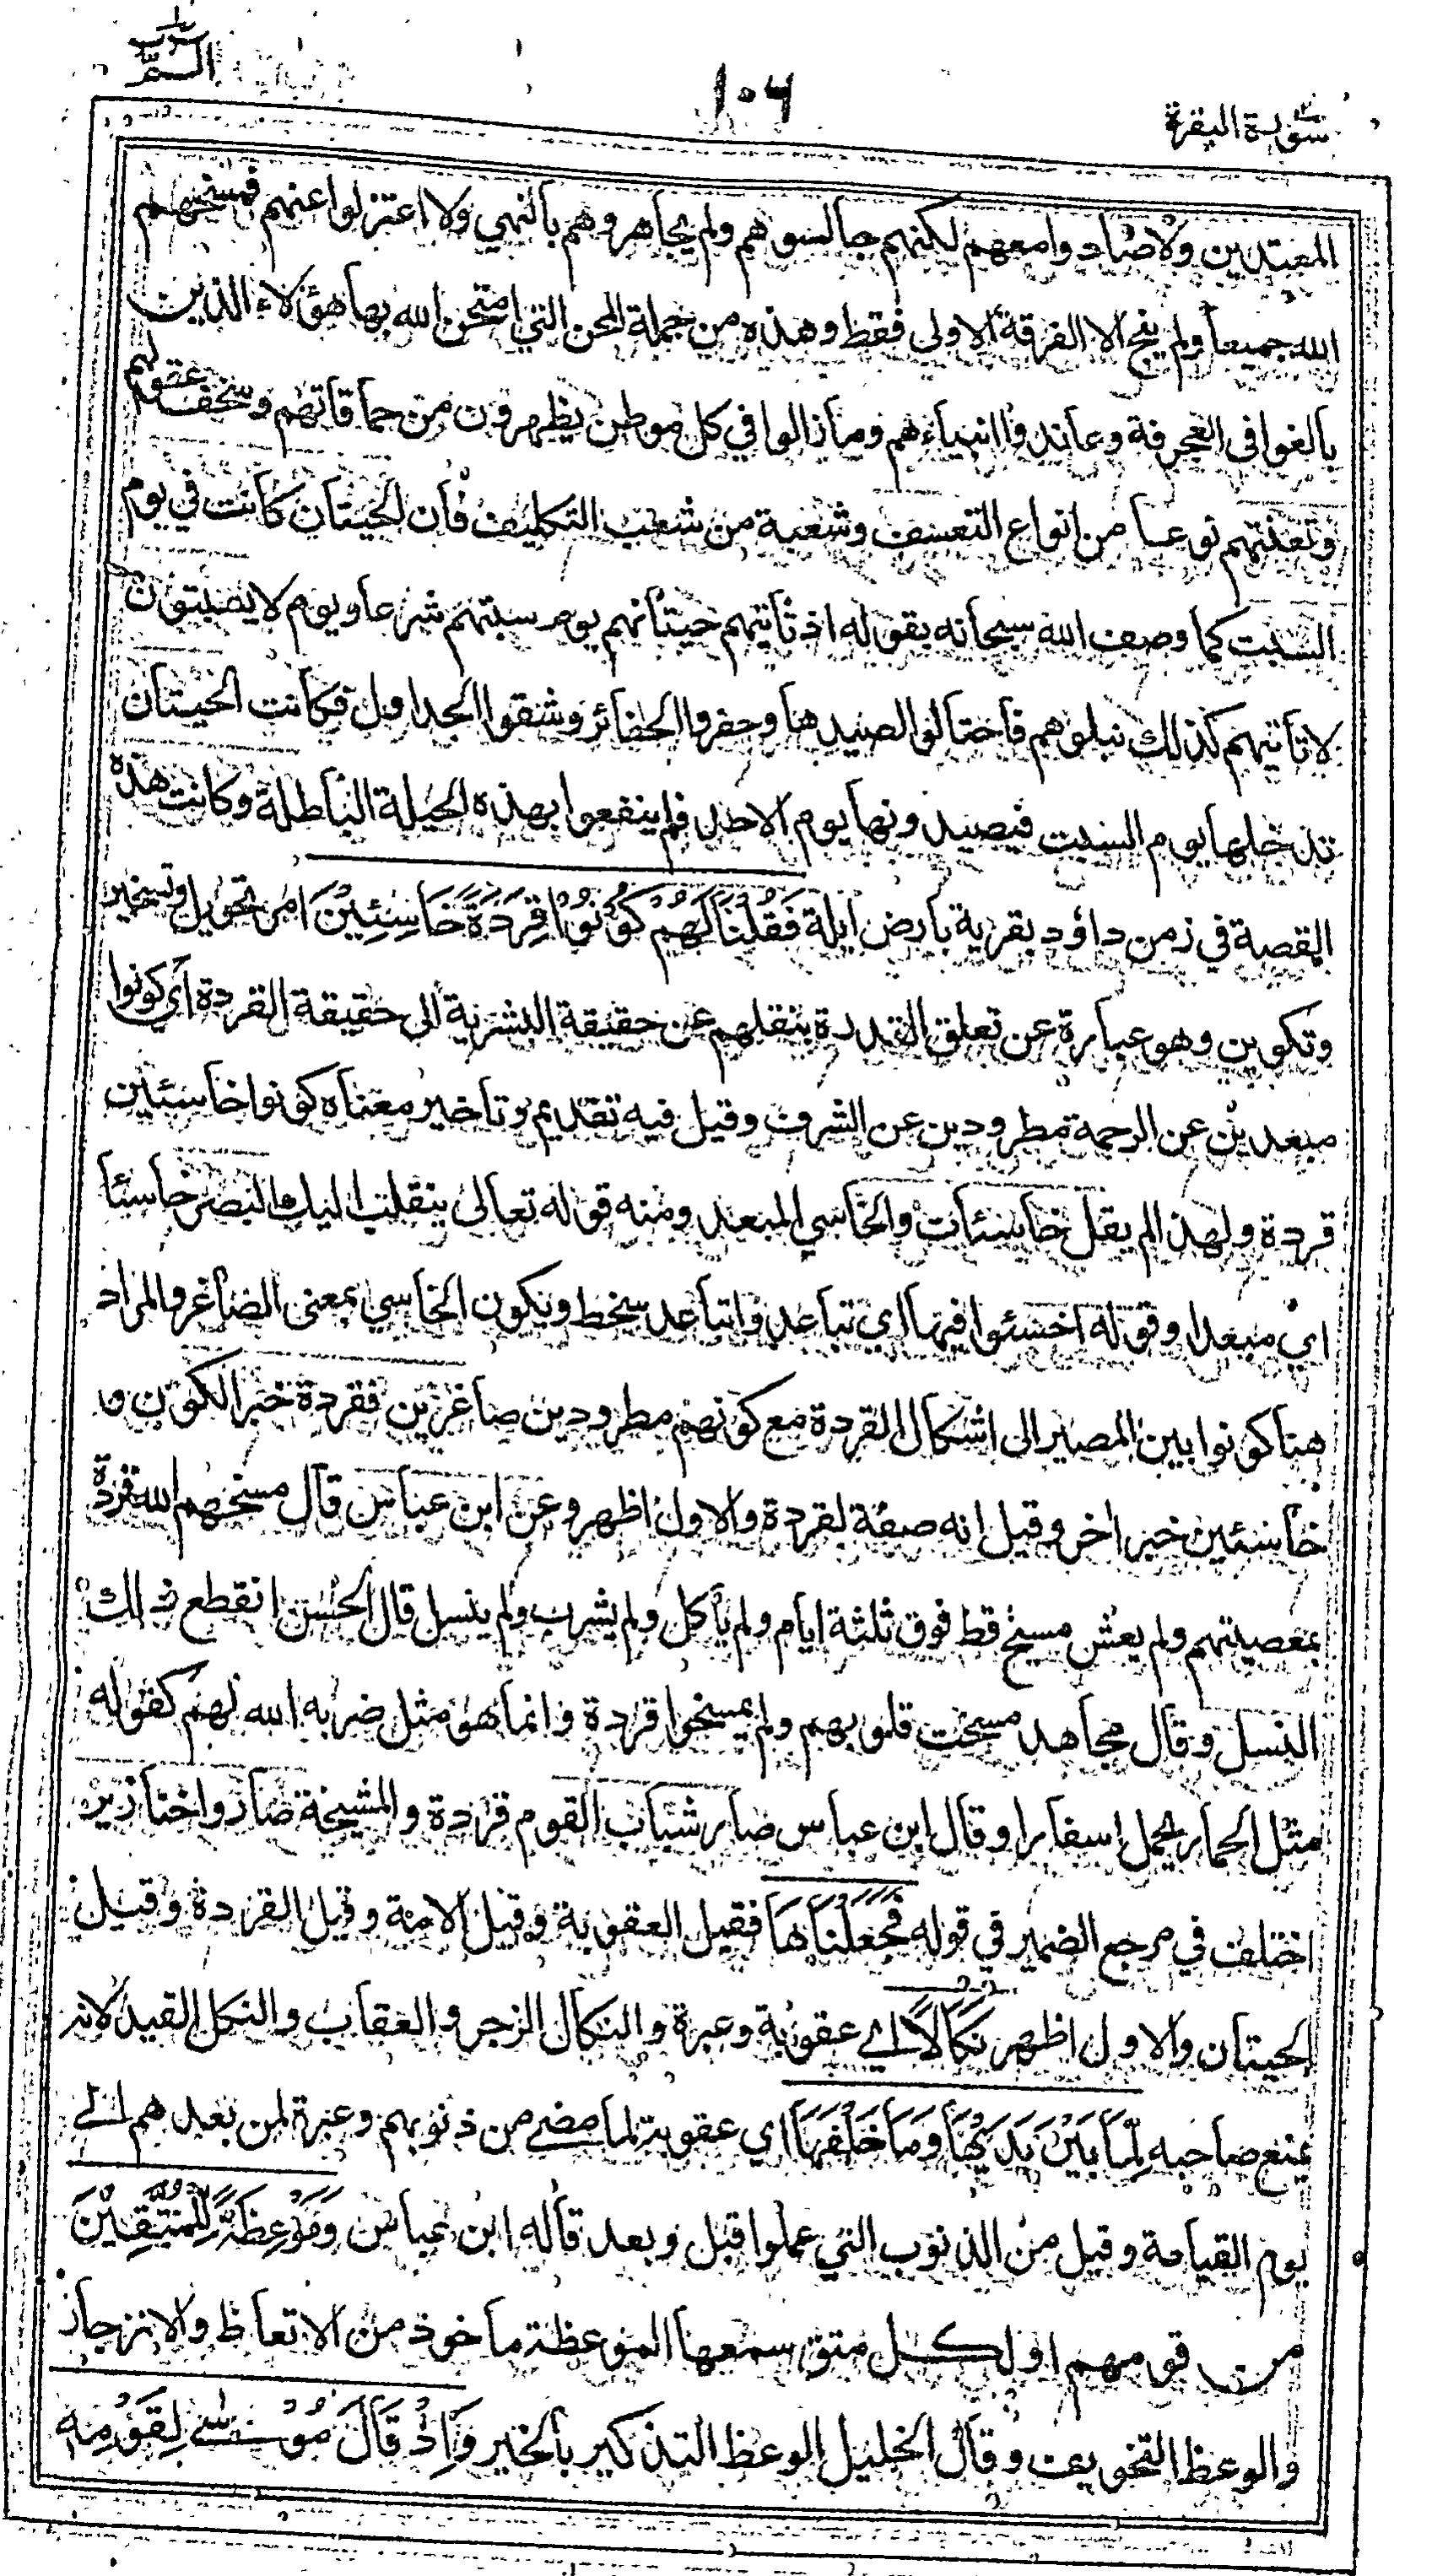 سورة البقرة
١٠٦
الم
المعتدين ولا صادوا معهم لكنهم جالسوهم ولم يجاهروهم بالنهي ولا اعتزلوا عنهم فمسخهم
الله جميعا ولم ينج الا الفرقة الاولى فقط وهذه من جملة المحن التي امتحن الله بها هؤلاء الذين
بالغوا في العجرفة وعاندوا انبياءهم ومازالوا في كل موطن يظهرون من حماقاتهم وسخف عقولهم
وتعنتهم نوعا من انواع التعسف وشعبة من شعب التكليف فان الحيتان كانت في يوم
السبت كما وصف الله سبحانه بقوله اذ تأتيهم حيتانهم يوم سبتهم شرعا ويوم لا يسبتون
لا تأتيهم كذلك نبلوهم فاحتالوا لصيدها وحفروا الحفائر وشقوا الجداول فكانت الحيتان
تدخلها يوم السبت فيصيدونها يوم الاحد فلم ينتفعوا بهذه الحيلة الباطلة وكانت هذه
القصة في زمن داؤد بقرية بارض ايلة فَقُلْنَا لَهُمْ كُوْنُوْا قِرَدَةً خَاسِئِيْنَ امر تحويل وتسخير
وتكوين وهو عبارة عن تعلق القدرة بنقلهم عن حقيقة البشرية الى حقيقة القردة اي كونوا
مبعدين عن الرحمة مطرودين عن الشرف وقيل فيه تقديم وتاخير معناه كونوا خاسئين
قردة ولهذا لم يقل خاسئات والخاسي المبعد ومنه قوله تعالى ينقلب اليك البصر خاسئا
اي مبعدا وقوله اخسئوا فيها اي تباعدوا تباعد سخط ويكون الخاسي بمعنى الصاغر والمراد
هنا كونوا بين المصير الى اشكال القردة مع كونهم مطرودين صاغرين فقردة خبر الكون و
خاسئين خبر اخر وقيل انه صفة لقردة والاول اظهر وعن ابن عباس قال مسخهم الله قردة
بمعصيتهم ولم يعش مسيخ قط فوق ثلثة ايام ولم يأكل ولم يشرب ولم ينسل قال الحسن انقطع ذلك
النسل وقال مجاهد مسخت قلوبهم ولم يمسخوا قردة وانما هو مثل ضربه الله لهم كقوله
مثل الحمار يحمل اسفارا وقال ابن عباس صار شباب القوم قردة والمشيخة صاروا خنازير
اختلف في مرجع الضمير في قوله فَجَعَلْنَاهَا فقيل العقوبة وقيل الامة وقيل القردة وقيل
الحيتان والاول اظهر نَكَالًا اي عقوبة وعبرة والنكال الزجر والعقاب والنكل القيد لانه
يمنع صاحبه لِّمَا بَيْنَ يَدَيْهَا وَمَا خَلْفَهَا اي عقوبة لما مضى من ذنوبهم وعبرة لمن بعدهم الى
يوم القيامة وقيل من الذنوب التي عملوا قبل وبعد قاله ابن عباس وَمَوْعِظَةً لِّلْمُتَّقِيْنَ
من قومهم او لكل متق سمعها الموعظة ماخوذ من الاتعاظ والانزجار
والوعظ التخويف وقال الخليل الوعظ التذكير بالخير وَاِذْ قَالَ مُوْسٰى لِقَوْمِهٖ